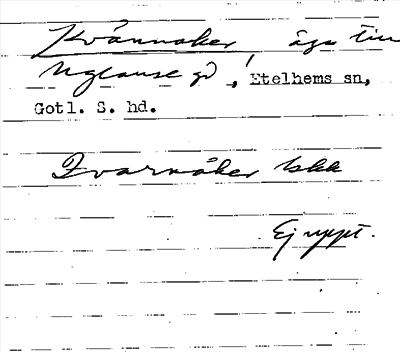 Kvännåker äga till
Uglause gd, Etelhems sn,
Gotl. S. hd.
Qvarnåker Lskk
Ej uppt.